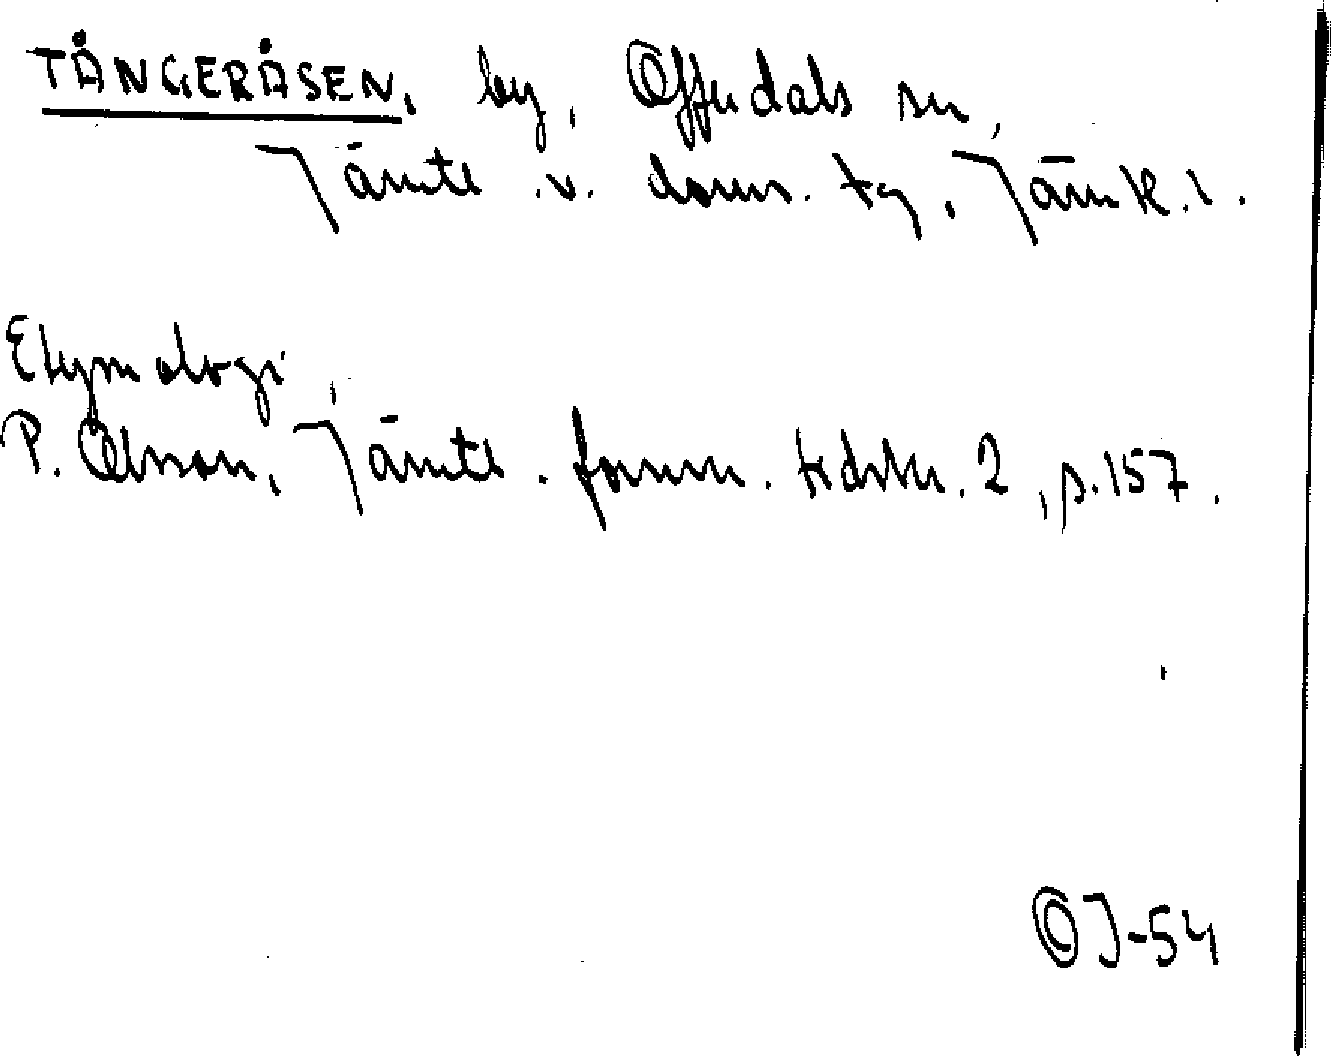 TÅNGERÅSEN, by, Offerdals sn,
Jämtl. v. doms. tg, Jämtl. l.
Etymologi,
P. Olsson, Jämtl. fornm. tidskr. 2, p. 157.
OJ-54